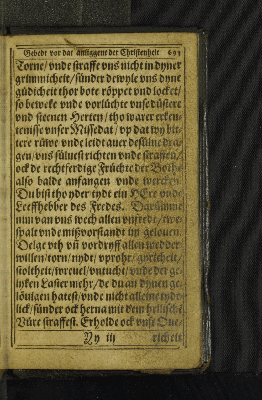 Gebedt vor dat anliggent der Christenheit 693
Torne/ vnde straffe vns nicht in dyner
grimmicheit/ sünder dewyle vns dyne
güdicheit thor bote röppet vnd locket/
so beweke vnde vorlüchte vnse düstere
vnd steenen Herten/ tho warer erken-
tenisse vnser Missedat/ vp dat wy bit-
tere rüwe vnde leidt auer desülue dra-
gen/ vns süluest richten vnde straffen/
ock de rechtferdige Früchte der Bothe
also balde anfangen vnde
Du bist tho yder tydt ein HEre vnde
Leeffhebber des Fredes.
nim van vns wech allen vnfredt/ twe-
spalt vnde mißvorstandt im gelouen.
Delge vth vñ vordryff allen wedder-
willen/ torn/ nydt/ vprohr/ gyricheit/
stoltheit/ wreuel/ vntucht/ vnde der ge-
lyken Laster mehr/ de du an dynen ge-
löuigen hatest/ vnde nicht alleine tydt-
lick/ sünder ock herna mit dem hellische
Vüre straffest. Erholde ock vnse Ouer-
Yy iij richeit